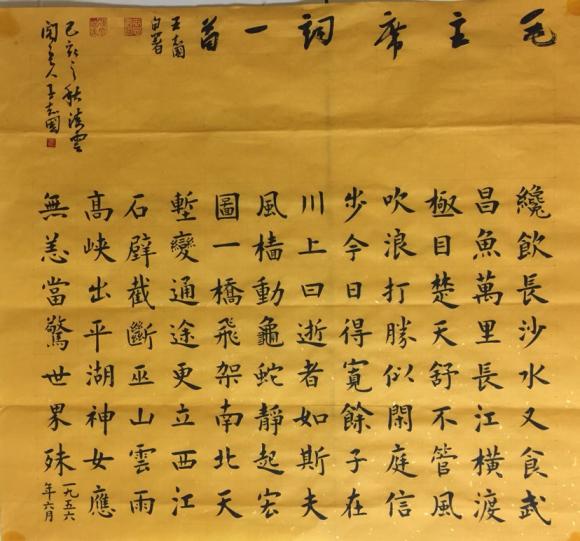 毛主席詞一首
自署
纔飲長沙水又食武
昌魚萬里長江橫渡
極目楚天舒不管風
吹浪打勝似閑庭信
步今日得寬餘子在
川上曰逝者如斯夫
風檣動龜蛇靜起宏
圖一橋飛架南北天
塹變通途更立西江
石壁截斷巫山雲雨
高峽出平湖神女應
無恙當驚世界殊
一九五六
年六月
己亥之秋清雲
主人王志國